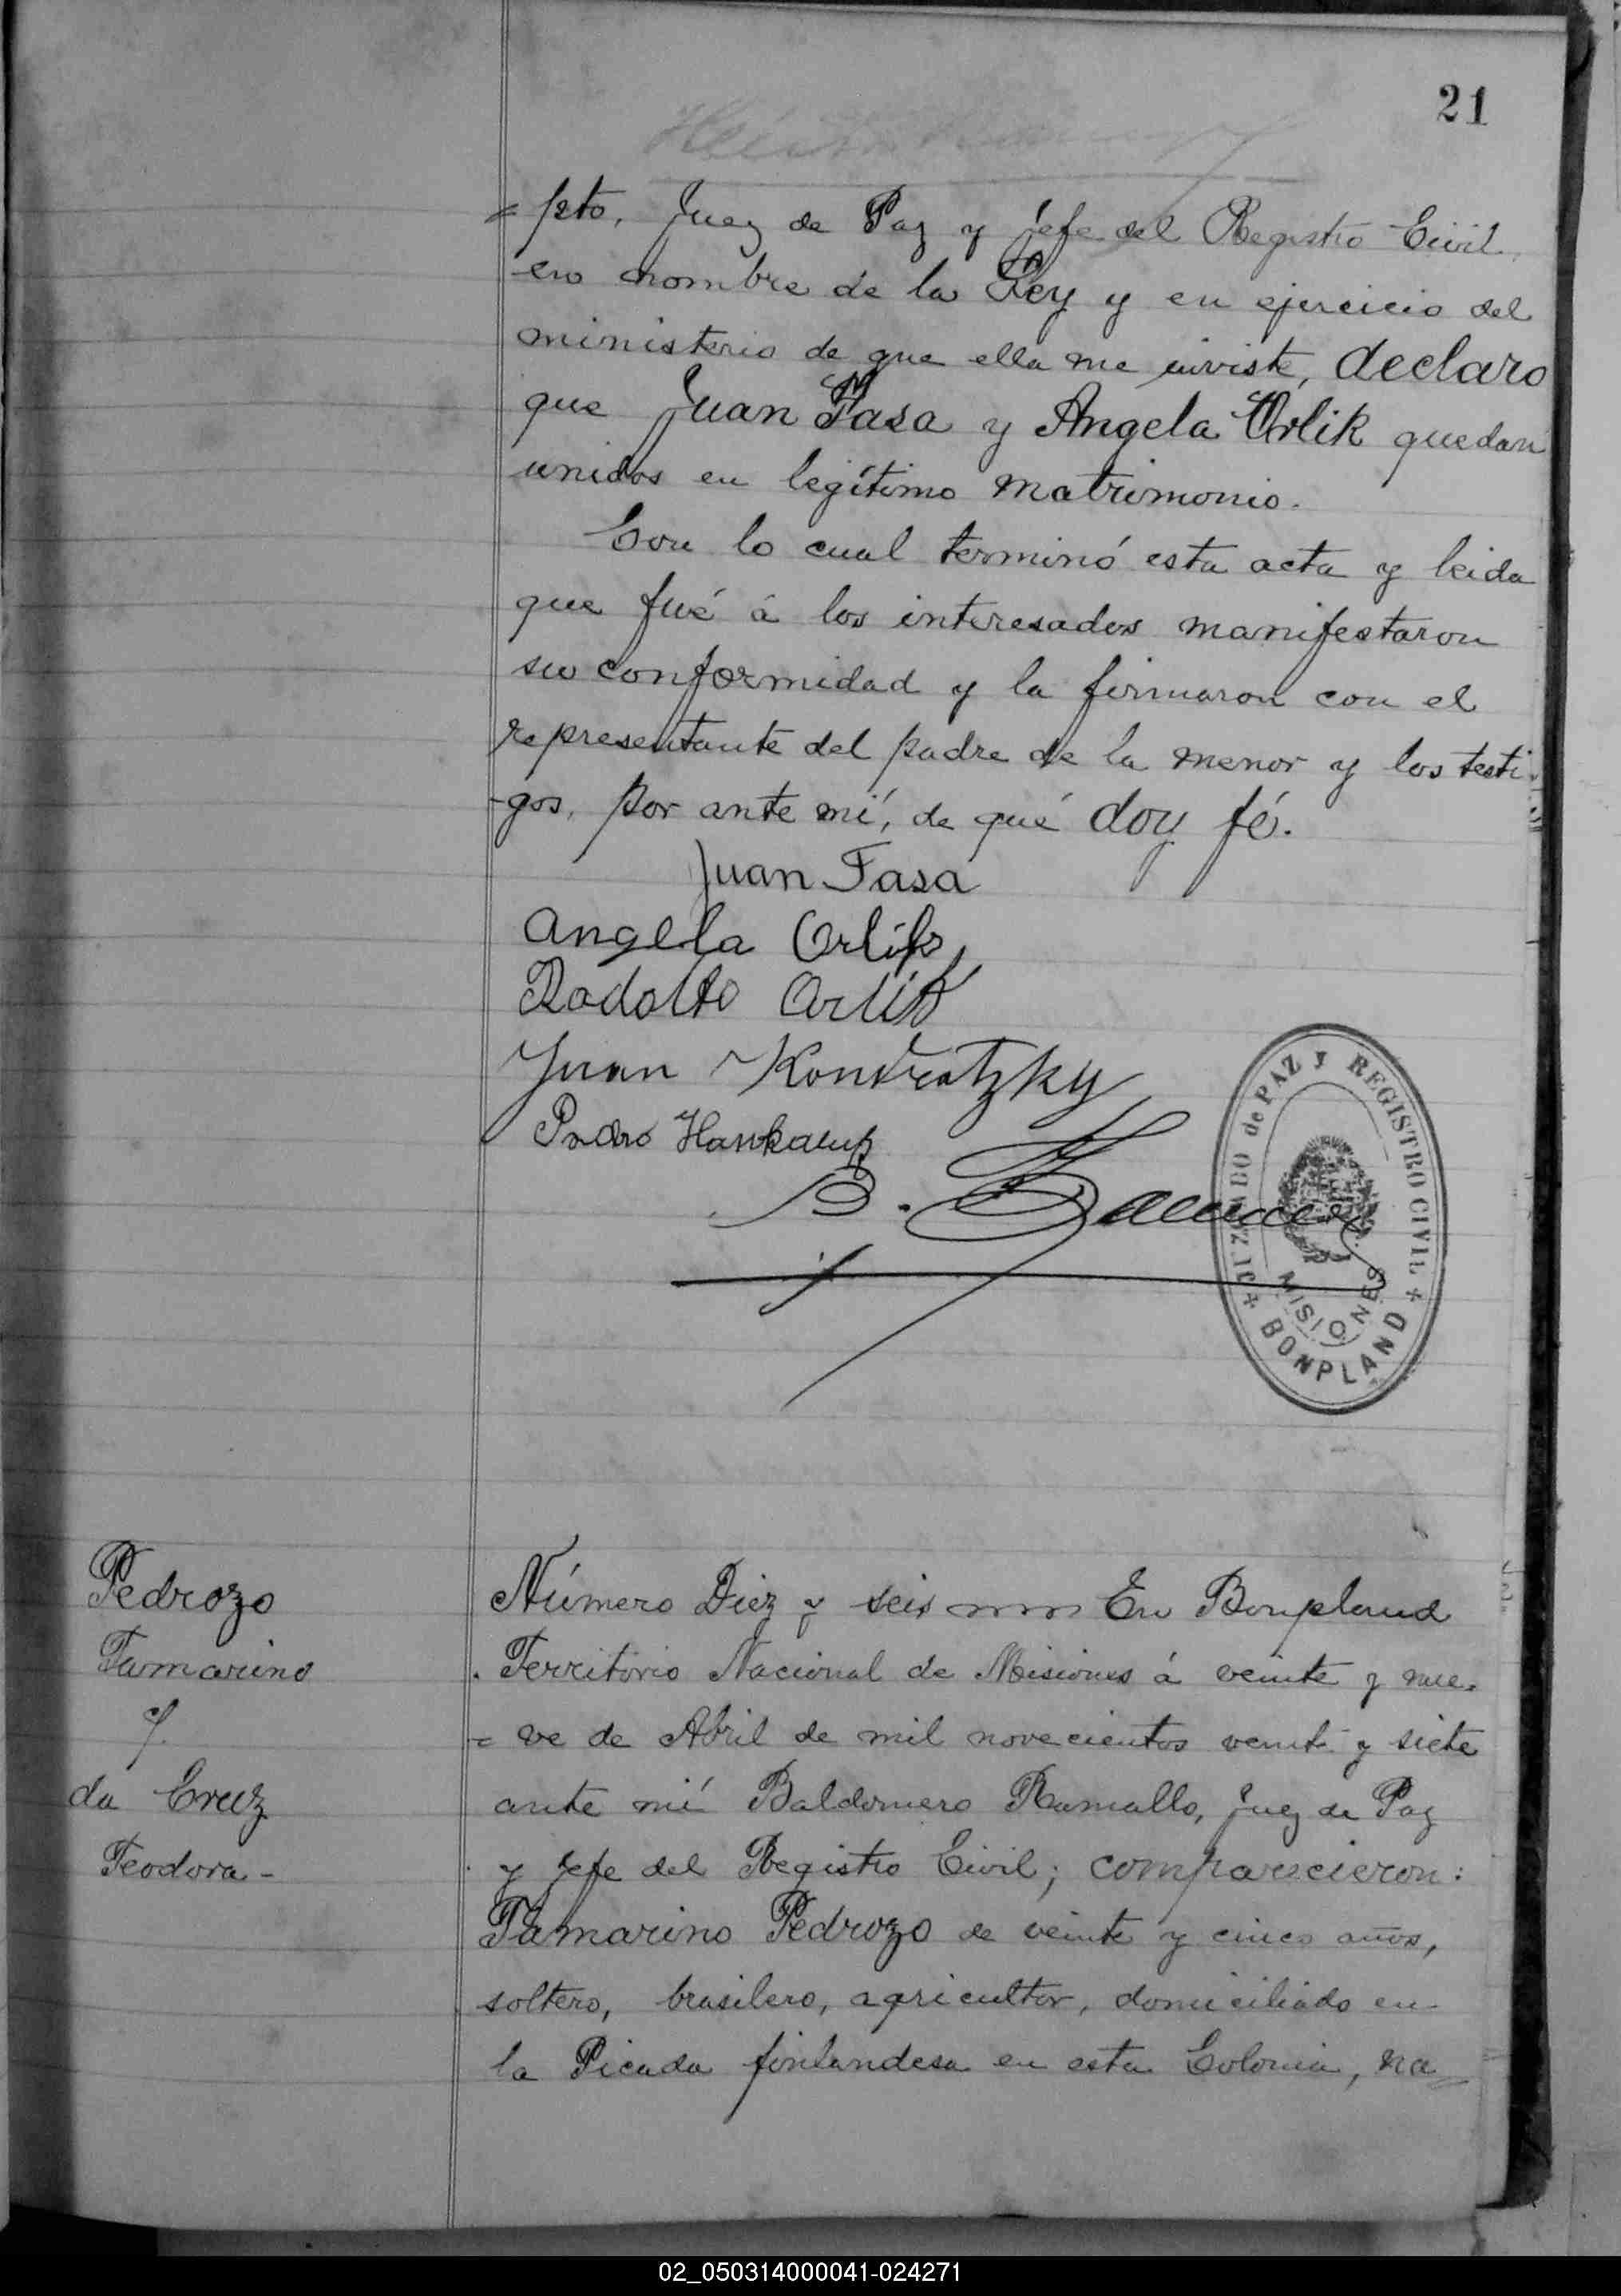 21
= pto, Juez de Paz y Jefe del Registro Civil,
en nombre de la Ley y en ejercicio del
ministerio de que ella me inviste, declaro
que Juan Fasa y Angela Orlik quedan
unidos en legítimo matrimonio.
Con lo cual terminó esta acta y leida
que fué á los interesados manifestaron
su conformidad y la firmaron con el
representante del padre de la menor y los testi-
-gos, por ante mí, de qué doy fé.
Juan Fasa
Angela Orlik
Rodolfo Orlik
Juan Kondratzky
Pedro
B.
JUZGADO de PAZ y REGISTRO CIVIL
MISIONES
BONPLAND
Pedrozo
Tamarino
c/.
da Cruz
Teodora -
Número Diez y seis En Bonpland
Territorio Nacional de Misiones á veinte y nue-
= ve de Abril de mil novecientos veinte y siete
ante mí Baldomero Ramallo, Juez de Paz
y Jefe del Registro Civil; comparecieron:
Tamarino Pedrozo de veinte y cinco años,
soltero, brasilero, agricultor, domiciliado en
la Picada finlandesa en esta Colonia, na=
02_050314000041-024271